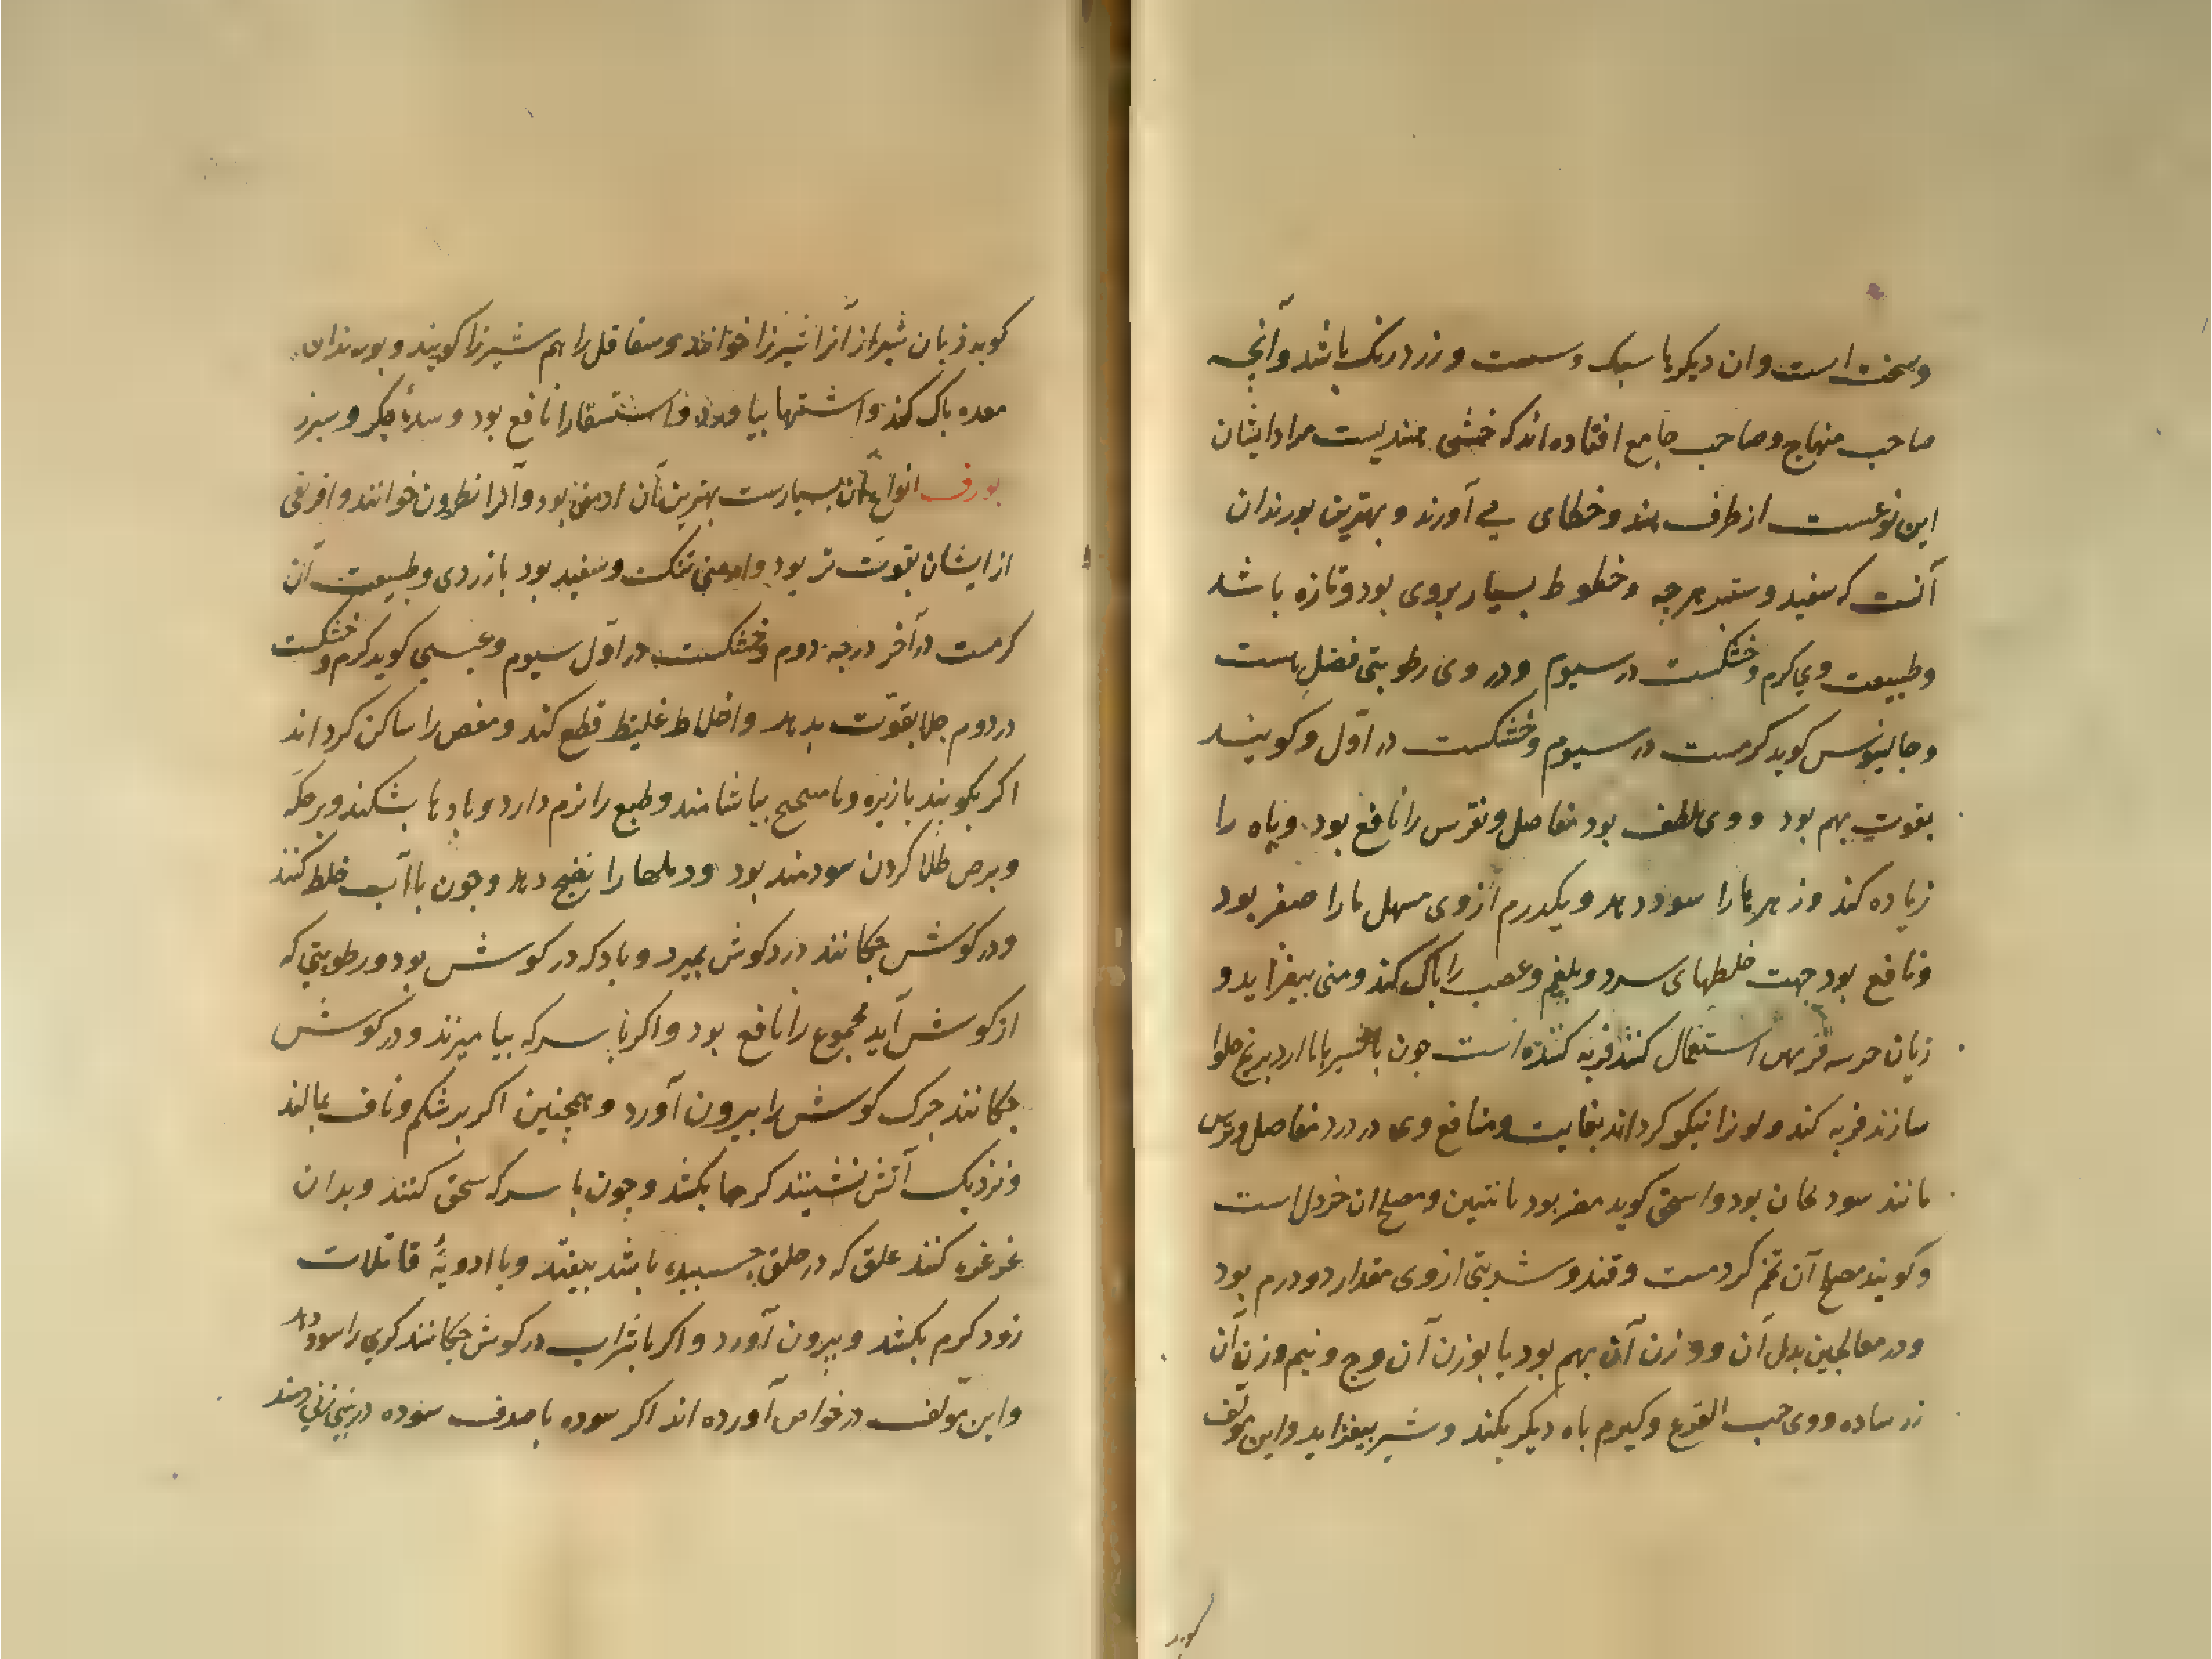 وسخت است وان دیکرها سبک و سست و زرد رنک باشد و آنچه
صاحب منهاج و صاحب جامع افتاده اند که خشی هندیست مراد ایشان
این نوعست از طرف هند و خطای می آورند و بهترین بورندان
آنست که سفید و ستبر هرجه و خطوط بسیار بروی بود و تازه باشد
و طبیعت وی کرم و خشکست در سیوم و در وی رطوبتی فضل هست
و جالینوس کوید کرمست در سیوم و خشکست در اوّل و کوینسد
بقوت بهم بود و وی ملطف بود مفاصل و نقرس را نافع بود و باه را
زیاده کند و زهرها را سود دهد و یکدرم از وی مسهل مارا صفر بود
و نافع بود جهت خلطهای سرد و بلغم و عصب را باک کند و منی بیفزاید و
زنان جون استعمال کنند فربه کننده است جون با شیر با با ارد برنج حلوا
سازند فربه کند و لون را نیکو کرداند بغایت و منافع وی در درد مفاصل و نقرس
مانند سورنجان بود و اسحق کوید مضر بود بانثیین و مصلح ان خردل است
و کویند مصلح آن تخم کرفست و قند و شربتی از وی مقدار دو درم بود
و در معالجین بدل آن و وزن آن بهم بود یا بوزن آن وج و نیم وزن آن
زر ساده و وی حب القرع و کیرم باه دیکر بکند و شیر بیفزاید و این مؤلف
کوید
کوید زبان شیراز آنرا شیرزا خوانند و شقاقل را هم شیرزا کویند و بورندان
معده باک کند و اشتها بیاورد و استسقا را نافع بود و سدهٔ جکر و سبرز
بورق انواع آن بسیارست بهترین آن ارمنی بود و آنرا نطرون خوانند و افریقی
از ایشان بقوّت تر بود و ارمنی تنکست و سفید بود با زردی و طبیعت آن
کرمست در آخر درجه دوم و خشکست در اوّل سیوم و عیسی کوید کرم و خشکست
در دوم جلا بقوّت بدهد و اخلاط غلیظ قطع کند و مغص را ساکن کرداند
اکر بکوبند با زیره و با میبختج بیاشامند و طبع را نرم دارد و بادها بشکند و بر حکه
و برص طلا کردن سودمند بود و دملها را نضج دهد و جون با آب خلط کنند
و در کوش جکانند درد کوش ببرد و باد که در کوش بود و رطوبتی که
از کوش آید مجموع را نافع بود و اکر با سرکه بیامیزند و در کوش
جکانند جرک کوش را بیرون آورد و همجنین اکر بر شکم و ناف بمالند
و نزدیک آتش نشینند کرمها بکشد و جون با سرکه سحق کنند و بدان
غرغره کنند علق که در حلق جسبیده باشد بیفتد و با ادویهٔ قاتلات
زود کرم بکشد و بیرون آورد و اکر با شراب در کوش جکانند کری را سود دهد
و این مؤلف در خواص آورده اند اکر سوده با صدف سوده در بینی زنی دمند